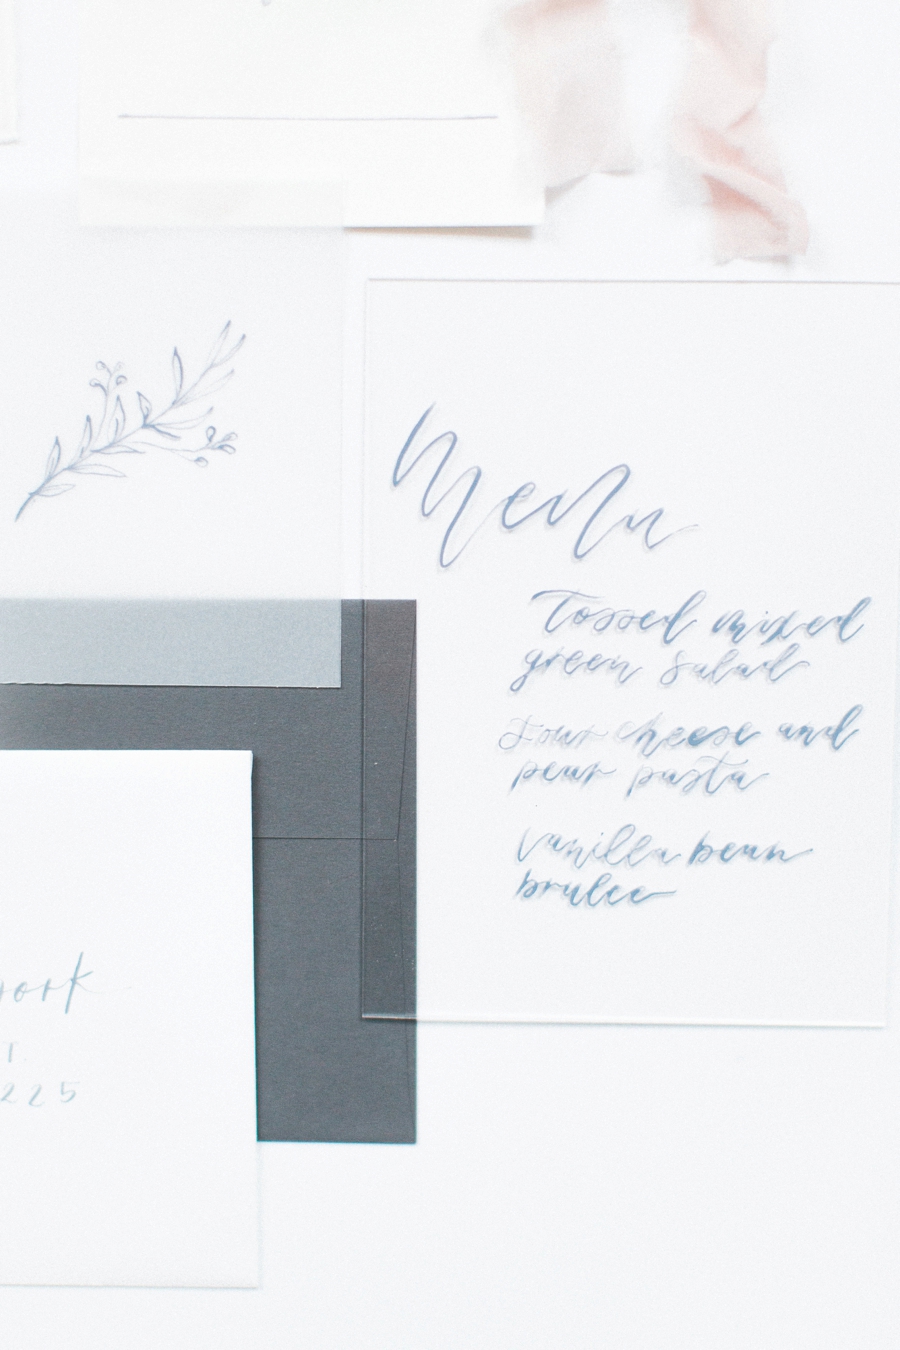 Menu
Tossed mixed
green salad
Four cheese and
pear pasta
Vanilla bean
brulee
ork
T.
225